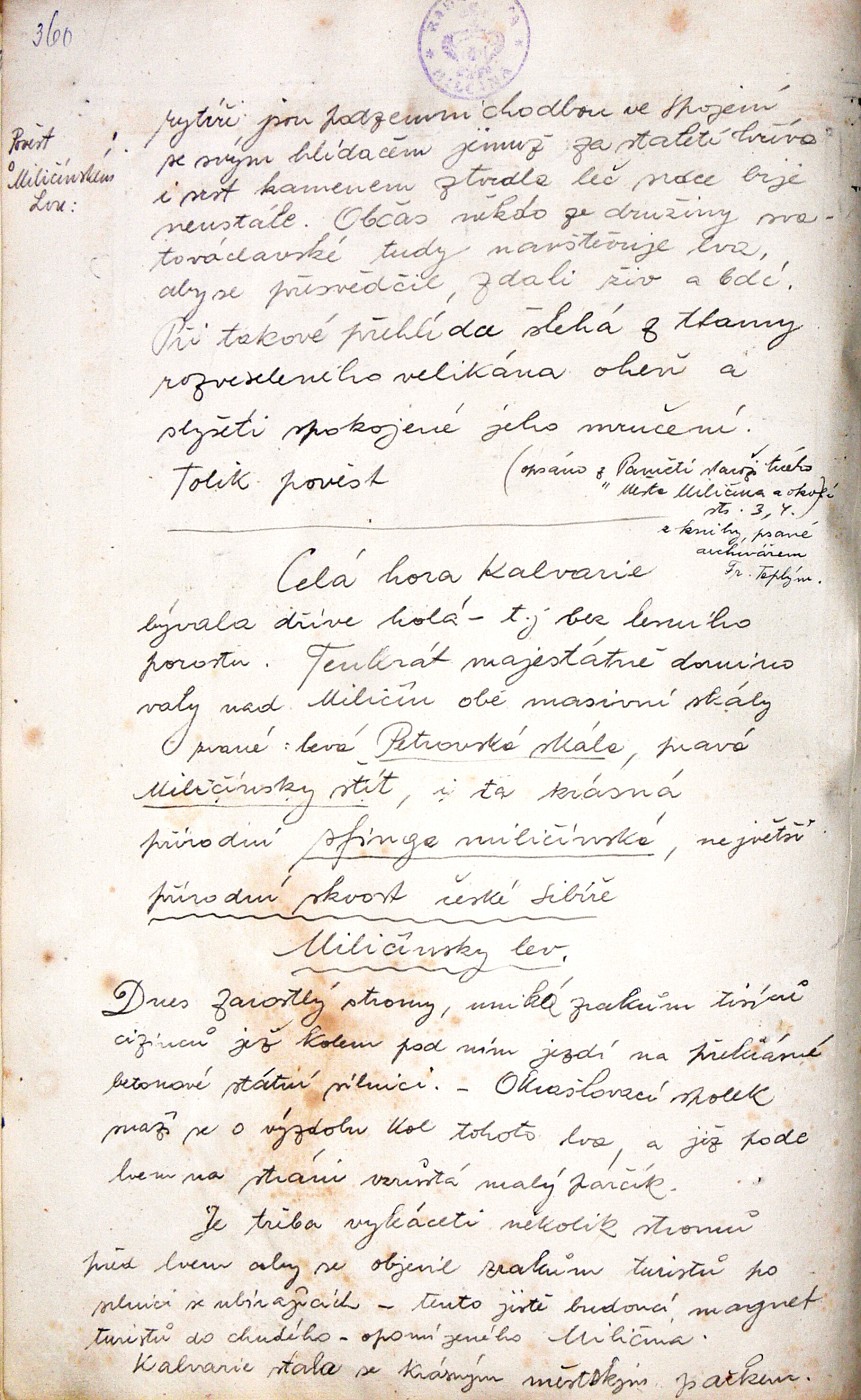 360
Pověst
o Miličínském
Lvu:
rytíři jsou podzemní chodbou ve spojení
se svým hlídačem jemuž za staletí hříva
i srst kamenem ztvrdla leč srdce bije
neustále. Občas někdo ze družiny sva-
továclavské tudy navštěvuje lva,
aby se přesvědčil, zdali živ a bdí.
Při takové přehlídce šlehá z tlamy
rozveseleného velikána oheň a
slyšeti spokojené jeho mručení.
Tolik pověst
(opsáno z Pamětí
Města Miličína a okolí
str. 3, 4.)
z knihy, psané
archivářem
Fr. Teplým.
Celá hora Kalvarie
bývala dříve holá – t.j bez lesního
porostu. Tenkrát majestátně domino
valy nad Miličín obě masivní skály
zvané: levá Petrovská skála, pravá
Miličínsky štít, i ta krásná
přírodní sfinga miličínská, největší
přírodní skvost české Sibiře
Miličínsky lev.
Dnes zarostlý stromy, uniká zrakům tisíců
cizinců již kolem pod ním jezdí na překrásné
betonové státní silnici. – Okrašlovací spolek
snaží se o výzdobu kol tohoto lva, a již pode
lvem na stráni vzrůstá malý párčík.
Je třeba vykáceti několik stromů
před lvem aby se objevil zrakům turistů po
silnici se ubírajících – tento jistě budoucí magnet
turistů do chudého – opomíjeného Miličína.
Kalvarie stala se krásným městským parkem.